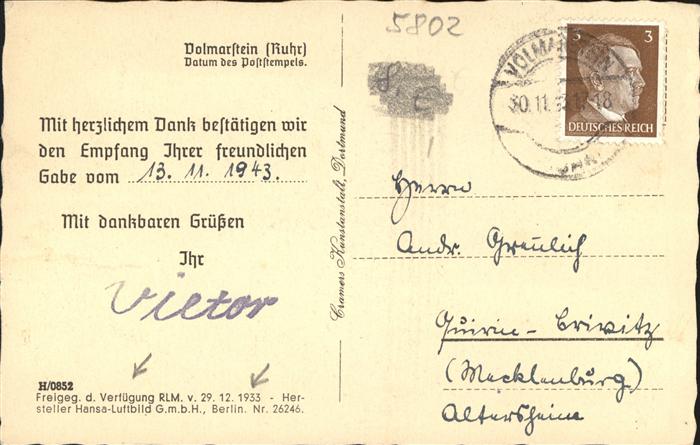 5802
Volmarstein (Ruhr)
Datum des Poststempels.
Mit herzlichem Dank bestätigen wir
den Empfang Ihrer freundlichen
Gabe vom 13. 11. 1943.
Mit dankbaren Grüßen
Ihr
Vietor
H/0852
Freigeg. d. Verfügung RLM. v. 29. 12. 1933 - Her-
steller Hansa-Luftbild G.m.b.H., Berlin. Nr. 26246.
Cramers Kunstanstalt, Dortmund
VOLMARSTEIN
30.11. 18
3 3
DEUTSCHES REICH
Herrn
Andr. Greulich
(Mecklenburg)
Altersheim